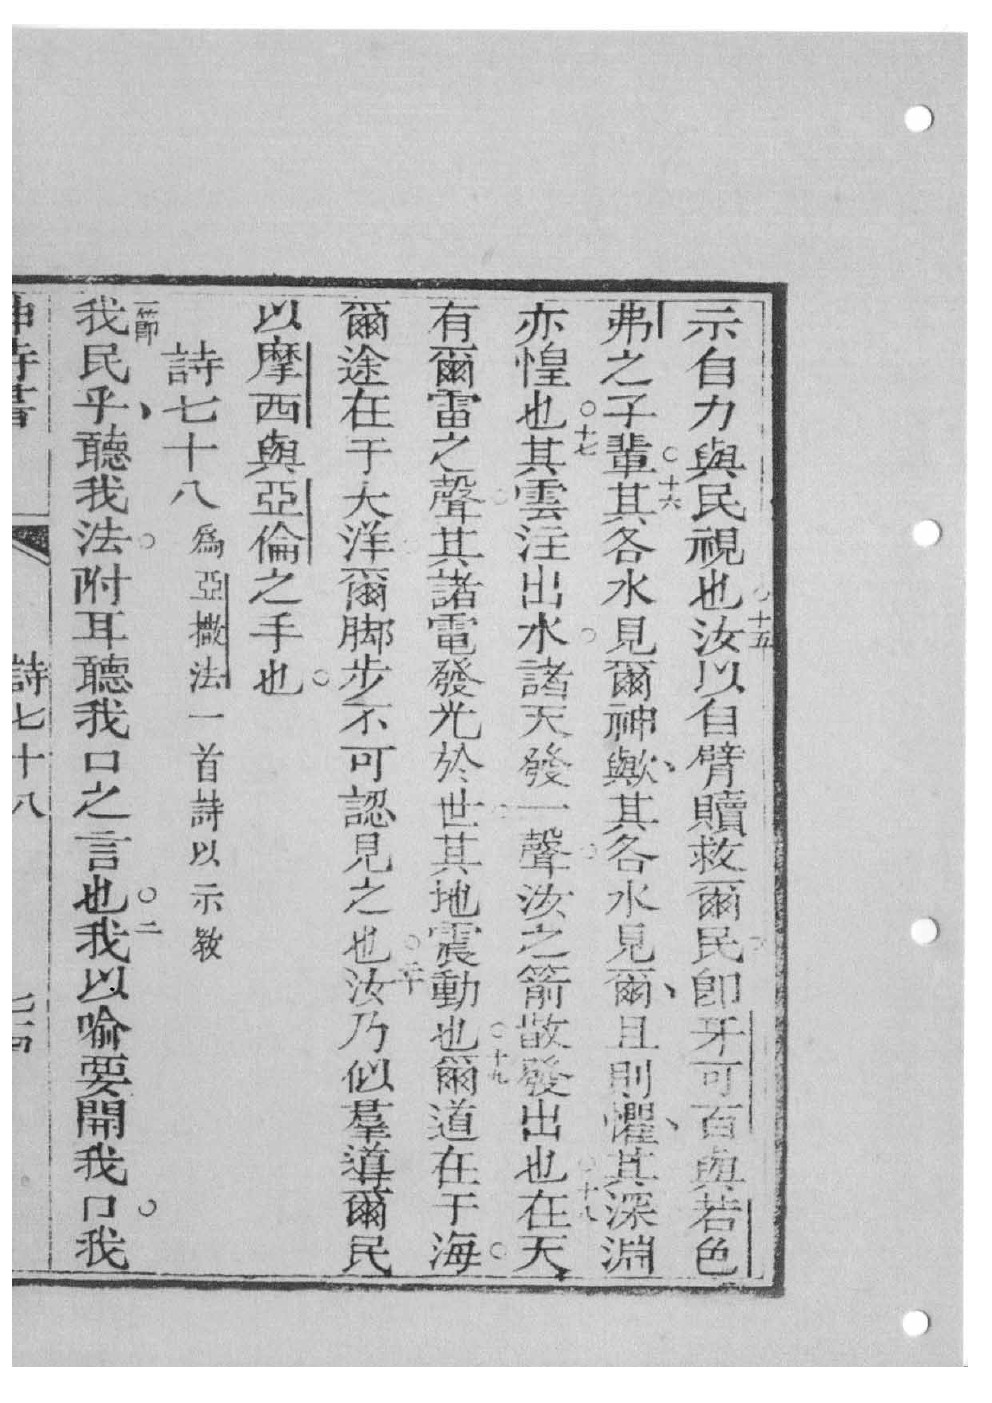 示自力與民視也○十五汝以自臂贖救爾民卽牙可百與若色
弗之子輩○十六其各水見爾神歟、其各水見爾、且則懼、其深淵
亦惶也○十七其雲注出水○諸天發一聲○汝之箭散發出也○十八在天
有爾雷之聲○其諸電發光於世○其地震動也○十九爾道在于海○
爾途在于大洋○爾脚步不可認見之也○二十汝乃似羣導爾民
以摩西與亞倫之手也○
詩七十八 爲亞撒法一首詩以示教
一節我民乎、聽我法○附耳聽我口之言也○二我以喻要開我口○我
神詩書 詩七十八